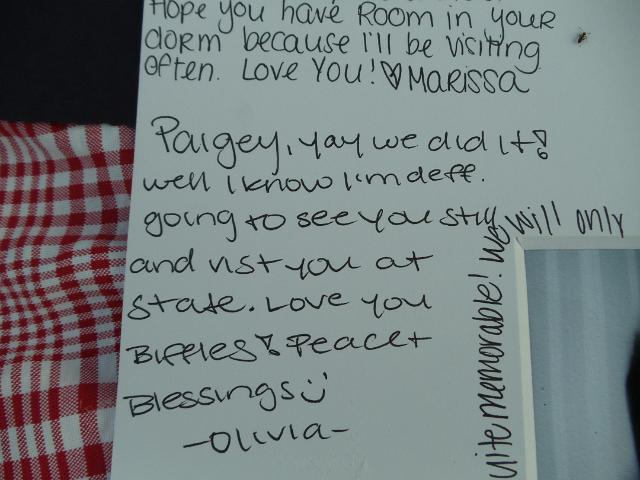 Hope you have Room in your
dorm because I'll be visiting
often. Love You! ♡ Marissa
Paigey, yay we did it!
well I know I'm deff.
going to see you still
and vist you at
state. Love you
Biffles! Peace +
Blessings :)
-Olivia-
memorable! We will only